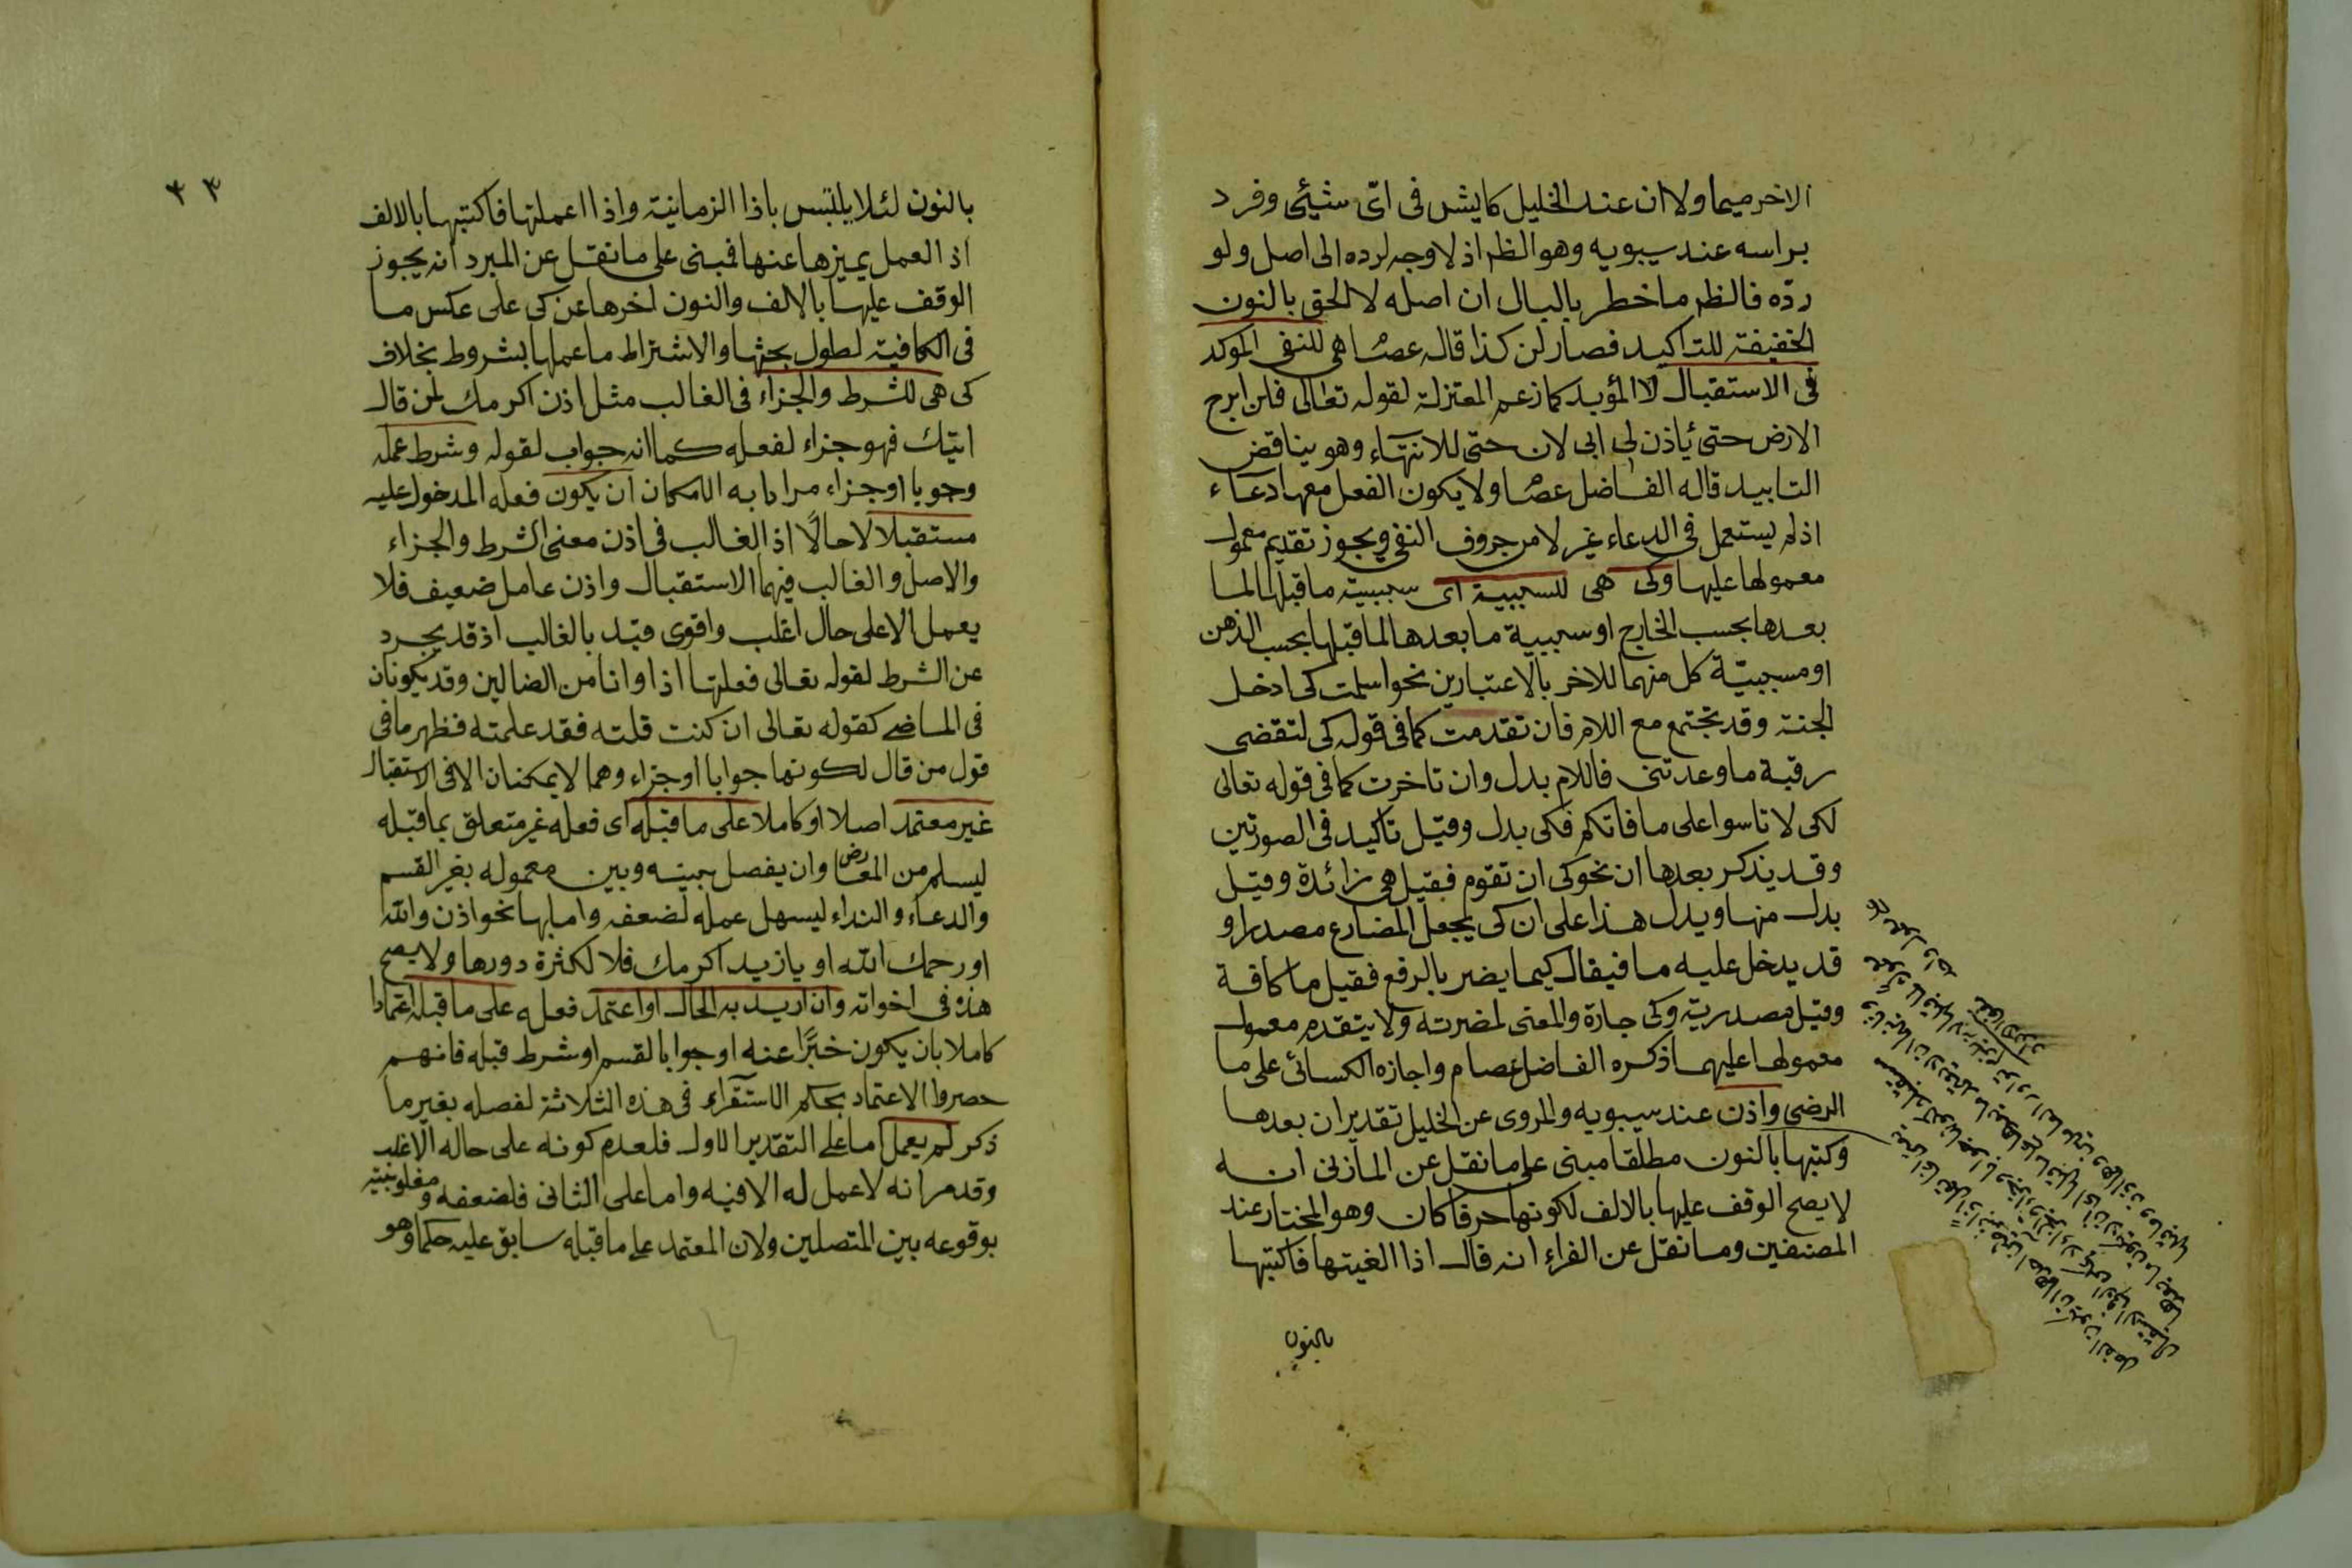 الاخر ميما ولا ان عند الخليل كايش فى اىّ شيئى وفرد
براسه عند سيبويه وهو الظ اذ لا وجه لرده الى اصل ولو
ردّه فالظ ما خطر بالبال ان اصله لا الحق بالنون
الخفيفة للتاكيد فصار لن كذا قاله عصا هى للنفى الموكد
فى الاستقبال لا المؤبد كما زعم المعتزلة لقوله تعالى فلن ابرح
الارض حتى يأذن لى ابى لان حتى للانتهاء وهو يناقض
التابيد قاله الفاضل عصا ولا يكون الفعل معها دعاء
اذ لم يستعمل فى الدعاء غير لا من حروف النفى ويجوز تقديم معمول
معمولها عليها وكى هى للسببية اى سببية ما قبلها لما
بعدها بحسب الخارج او سببية ما بعدها لما قبلها بحسب الذهن
او مسببيّة كل منهما للاخر بالاعتبارين نحو اسلمت كى ادخل
الجنة وقد تجتمع مع اللام فان تقدمت كما فى قوله كى لتقضى
رقية ما وعدتنى فاللام بدل وان تاخرت كما فى قوله تعالى
لكى لا تاسوا على ما فاتكم فكى بدل وقيل تاكيد فى الصورتين
وقد يذكر بعدها ان نحو كى ان تقوم فقيل هى زائدة وقيل
بدل منها ويدل هذا على ان كى يجعل المضارع مصدرا و
قد يدخل عليه ما فيقال كيما يضر بالرفع فقيل ما كافة
وقيل مصدرية وكى جارة والمعنى لمضرته ولا يتقدم معمول
معمولها عليهما ذكره الفاضل عصام واجازه الكسائى على ما
الرضى واذن عند سيبويه والمروى عن الخليل تقدير ان بعدها
وكتبها بالنون مطلقا مبنى على ما نقل عن المازنى انه
لا يصح الوقف عليها بالالف لكونها حرفا كان وهو المختار عند
المصنفين وما نقل عن الفراء انه قال اذا الغيتها فاكتبها
بالنون
٣٣
بالنون لئلا يلتبس باذا الزمانية واذا اعملتها فاكتبها بالالف
اذ العمل يميزها عنها فمبنى على ما نقل عن المبرد انه يجوز
الوقف عليها بالالف والنون اخرها عن كى على عكس ما
فى الكافية لطول بحثها والاشتراط ما عملها بشروط بخلاف
كى هى للشرط والجزاء فى الغالب مثل اذن اكرمك لمن قال
اتيك فهو جزاء لفعله كما انه جواب لقوله وشرط عمله
وجوبا او جزاء مرادا به الامكان ان يكون فعله المدخول عليه
مستقبلا لا حالًا اذ الغالب فى اذن معنى الشرط والجزاء
والاصل والغالب فيهما الاستقبال واذن عامل ضعيف فلا
يعمل الا على حال اغلب واقوى قيّد بالغالب اذ قد يجرد
عن الشرط لقوله تعالى فعلتها اذا وانا من الضالين وقد يكونان
فى الماضى كقوله تعالى ان كنت قلته فقد علمته فظهر ما فى
قول من قال لكونها جوابا او جزاء وهما لا يمكنان الا فى الاستقبال
غير معتمد اصلا او كاملا على ما قبله اى فعله غير متعلق بما قبله
ليسلم من المعارض وان يفصل بينه وبين معموله بغير القسم
والدعاء والنداء ليسهل عمله لضعفه واما بها نحو اذن والله
او رحمك الله او يا زيد اكرمك فلا لكثرة دورها ولا يصح
هذه فى اخواته وان اريد به الحال او اعتمد فعله على ما قبله اعتمادا
كاملا بان يكون خبرًا عنه او جوابا لقسم او شرط قبله فانهم
حصروا الاعتماد بحكم الاستقراء فى هذه الثلاثة لفصله بغير ما
ذكر لم يعمل اما على التقدير الاول فلعدم كونه على حاله الاغلب
وقد مر انه لا عمل له الا فيه واما على الثانى فلضعفه ومغلوبيته
بوقوعه بين المتصلين ولان المعتمد على ما قبله سابق عليه حكما وهو